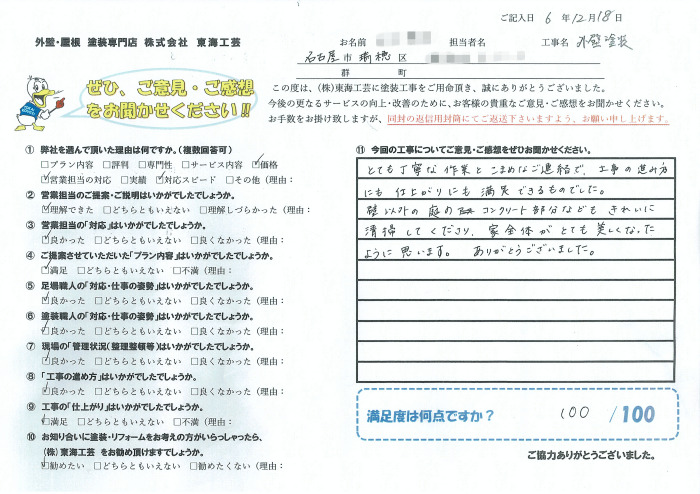 ご記入日 6 年 12月 18日
外壁・屋根 塗装専門店 株式会社 東海工芸
お名前 担当者名 工事名 外壁塗装
名古屋市 瑞穂 区
郡 町
ぜひ、ご意見・ご感想
をお聞かせください!!
この度は、(株)東海工芸に塗装工事をご用命頂き、誠にありがとうございました。
今後の更なるサービスの向上・改善のために、お客様の貴重なご意見・ご感想をお聞かせください。
お手数をお掛け致しますが、同封の返信用封筒にてご返送下さいますよう、お願い申し上げます。
① 弊社を選んで頂いた理由は何ですか。(複数回答可)
□プラン内容 □評判 □専門性 □サービス内容 ☑価格
☑営業担当の対応 □実績 ☑対応スピード □その他(理由:
② 営業担当のご提案・ご説明はいかがでしたでしょうか。
☑理解できた □どちらともいえない □理解しづらかった(理由:
③ 営業担当の「対応」はいかがでしたでしょうか。
☑良かった □どちらともいえない □良くなかった(理由:
④ ご提案させていただいた「プラン内容」はいかがでしたでしょうか。
☑満足 □どちらともいえない □不満(理由:
⑤ 足場職人の「対応・仕事の姿勢」はいかがでしたでしょうか。
☑良かった □どちらともいえない □良くなかった(理由:
⑥ 塗装職人の「対応・仕事の姿勢」はいかがでしたでしょうか。
☑良かった □どちらともいえない □良くなかった(理由:
⑦ 現場の「管理状況(整理整頓等)はいかがでしたでしょうか。
☑良かった □どちらともいえない □良くなかった(理由:
⑧ 「工事の進め方」はいかがでしたでしょうか。
☑良かった □どちらともいえない □良くなかった(理由:
⑨ 工事の「仕上がり」はいかがでしたでしょうか。
☑満足 □どちらともいえない □不満(理由:
⑩ お知り合いに塗装・リフォームをお考えの方がいらっしゃったら、
(株)東海工芸 をお勧め頂けますでしょうか。
☑勧めたい □どちらともいえない □勧めたくない(理由:
⑪ 今回の工事についてご意見・ご感想をぜひお聞かせください。
とても丁寧な作業とこまめなご連絡で、工事の進み方
にも仕上がりにも満足できるものでした。
壁以外の庭の コンクリート部分などもきれいに
清掃してくださり、家全体がとても美しくなった
ように思います。 ありがとうございました。
満足度は何点ですか? 100 /100
ご協力ありがとうございました。